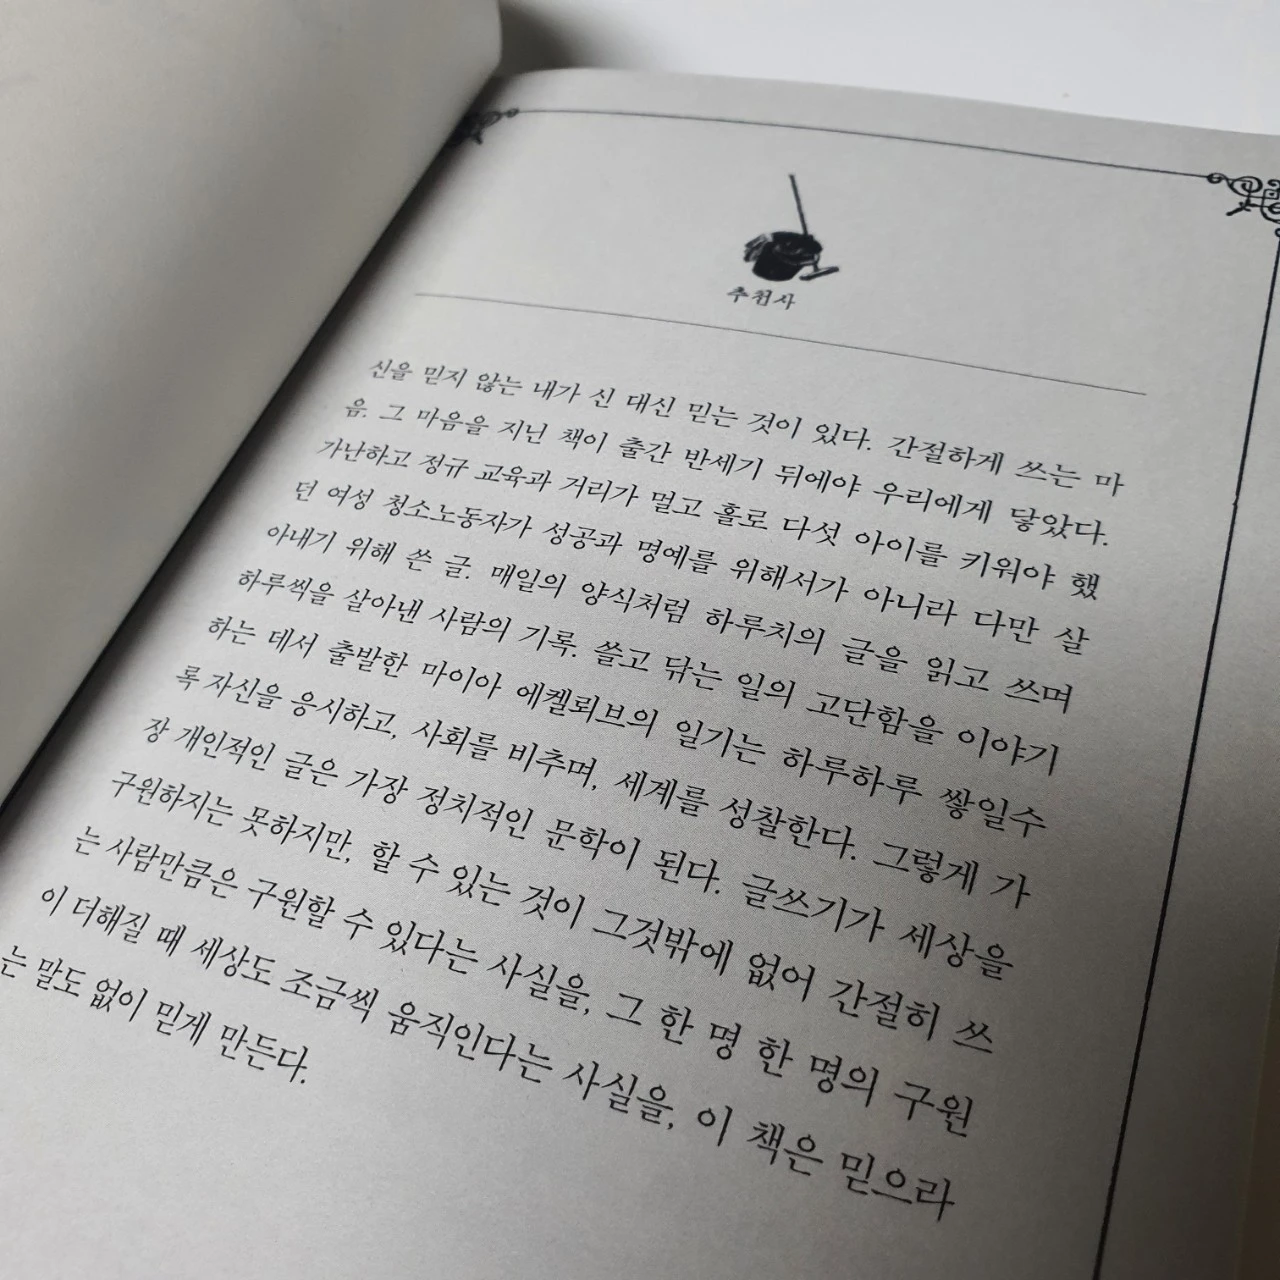 추천사
신을 믿지 않는 내가 신 대신 믿는 것이 있다. 간절하게 쓰는 마
음. 그 마음을 지닌 책이 출간 반세기 뒤에야 우리에게 닿았다.
가난하고 정규 교육과 거리가 멀고 홀로 다섯 아이를 키워야 했
던 여성 청소노동자가 성공과 명예를 위해서가 아니라 다만 살
아내기 위해 쓴 글. 매일의 양식처럼 하루치의 글을 읽고 쓰며
하루씩을 살아낸 사람의 기록. 쓸고 닦는 일의 고단함을 이야기
하는 데서 출발한 마이아 에켈뢰브의 일기는 하루하루 쌓일수
록 자신을 응시하고, 사회를 비추며, 세계를 성찰한다. 그렇게 가
장 개인적인 글은 가장 정치적인 문학이 된다. 글쓰기가 세상을
구원하지는 못하지만, 할 수 있는 것이 그것밖에 없어 간절히 쓰
는 사람만큼은 구원할 수 있다는 사실을, 그 한 명 한 명의 구원
이 더해질 때 세상도 조금씩 움직인다는 사실을, 이 책은 믿으라
는 말도 없이 믿게 만든다.